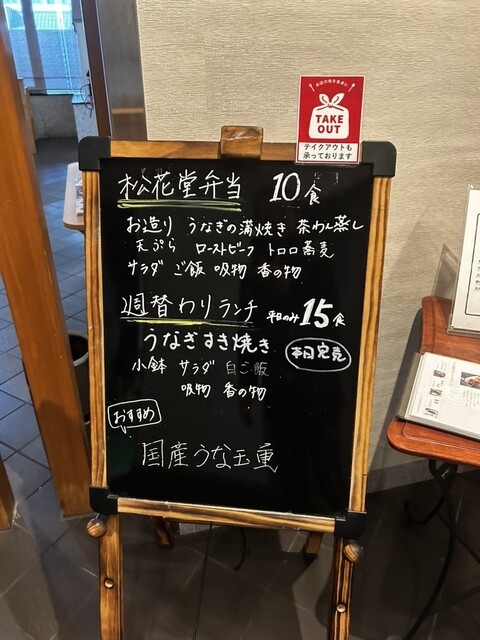 TAKE
OUT
テイクアウトも
承っております
松花堂弁当 10食
お造り うなぎの蒲焼き 茶わん蒸し
天ぷら ローストビーフ トロロ蕎麦
サラダ ご飯 吸物 香の物
週替わりランチ 平日のみ 15食
うなぎすき焼き 本日完売
小鉢 サラダ 白ご飯
吸物 香の物
おすすめ
国産うな玉重